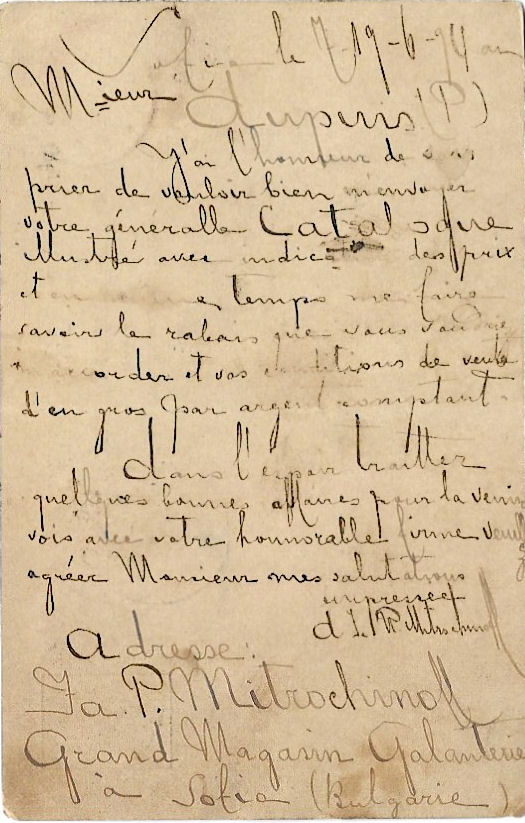 Sofia le 7-19-6-94 an
Mieur
Dupuis (P)
J'ai l'honneur de vous
prier de vouloir bien m'envoyer
votre généralle Catalogue
illustré avec indicé des prix
et en même temps me faire
savoire le rabais que vous voudrie
accorder et vos conditions de vente
d'en gros par argent comptant.
dans l'éspoir traitter
quellques bonnes affaires pour la venir
vois avec votre honnorable firme veuill
agréer Monsieur mes salutations
empressect
d I. P. Mitrochinoff
Adresse:
Ia. P. Mitrochinoff
Grand Magasin Galanterie
à Sofia (Bulgarie)